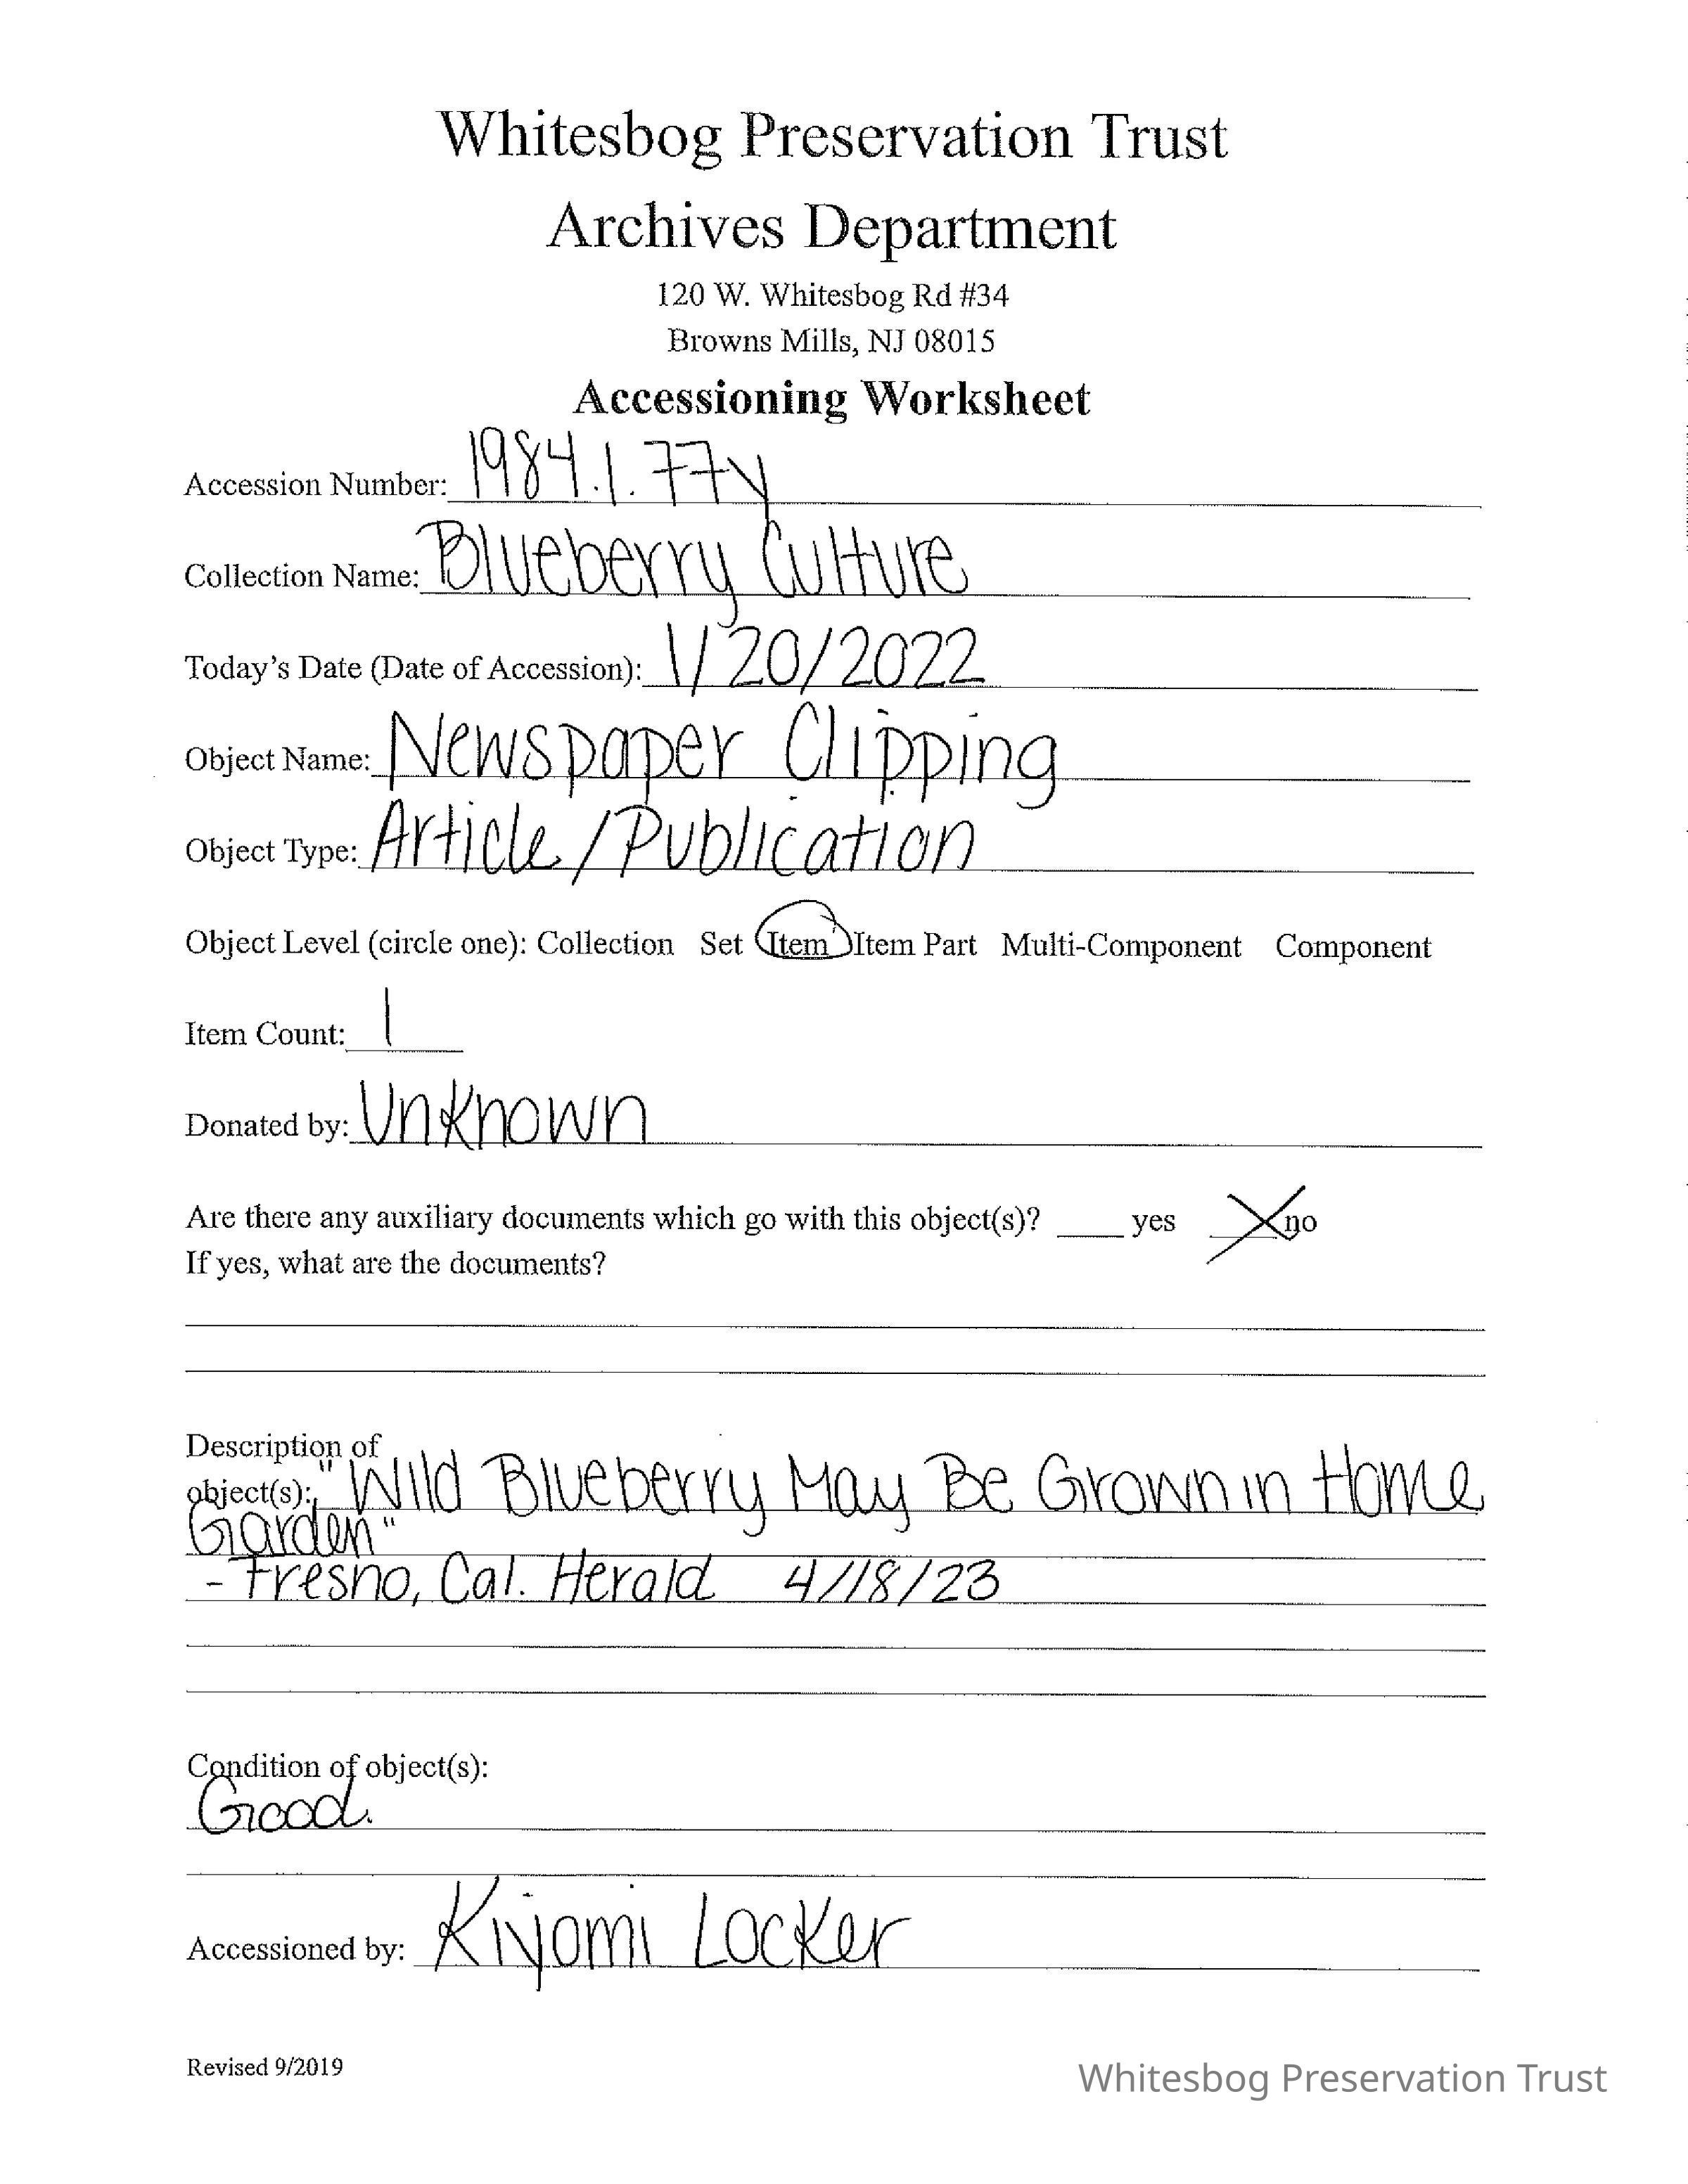 Whitesbog Preservation Trust
Archives Department
120 W. Whitesbog Rd #34
Browns Mills, NJ 08015
Accessioning Worksheet
Accession Number: 1984.1.77y
Collection Name: Blueberry Culture
Today's Date (Date of Accession): 1/20/2022
Object Name: Newspaper Clipping
Object Type: Article/Publication
Object Level (circle one): Collection Set Item Item Part Multi-Component Component
Item Count: 1
Donated by: Unknown
Are there any auxiliary documents which go with this object(s)? ____ yes X no
If yes, what are the documents?
Description of
object(s): "Wild Blueberry May Be Grown in Home
Garden"
- Fresno, Cal. Herald 4/18/23
Condition of object(s):
Good.
Accessioned by: Kiyomi Locker
Revised 9/2019
Whitesbog Preservation Trust